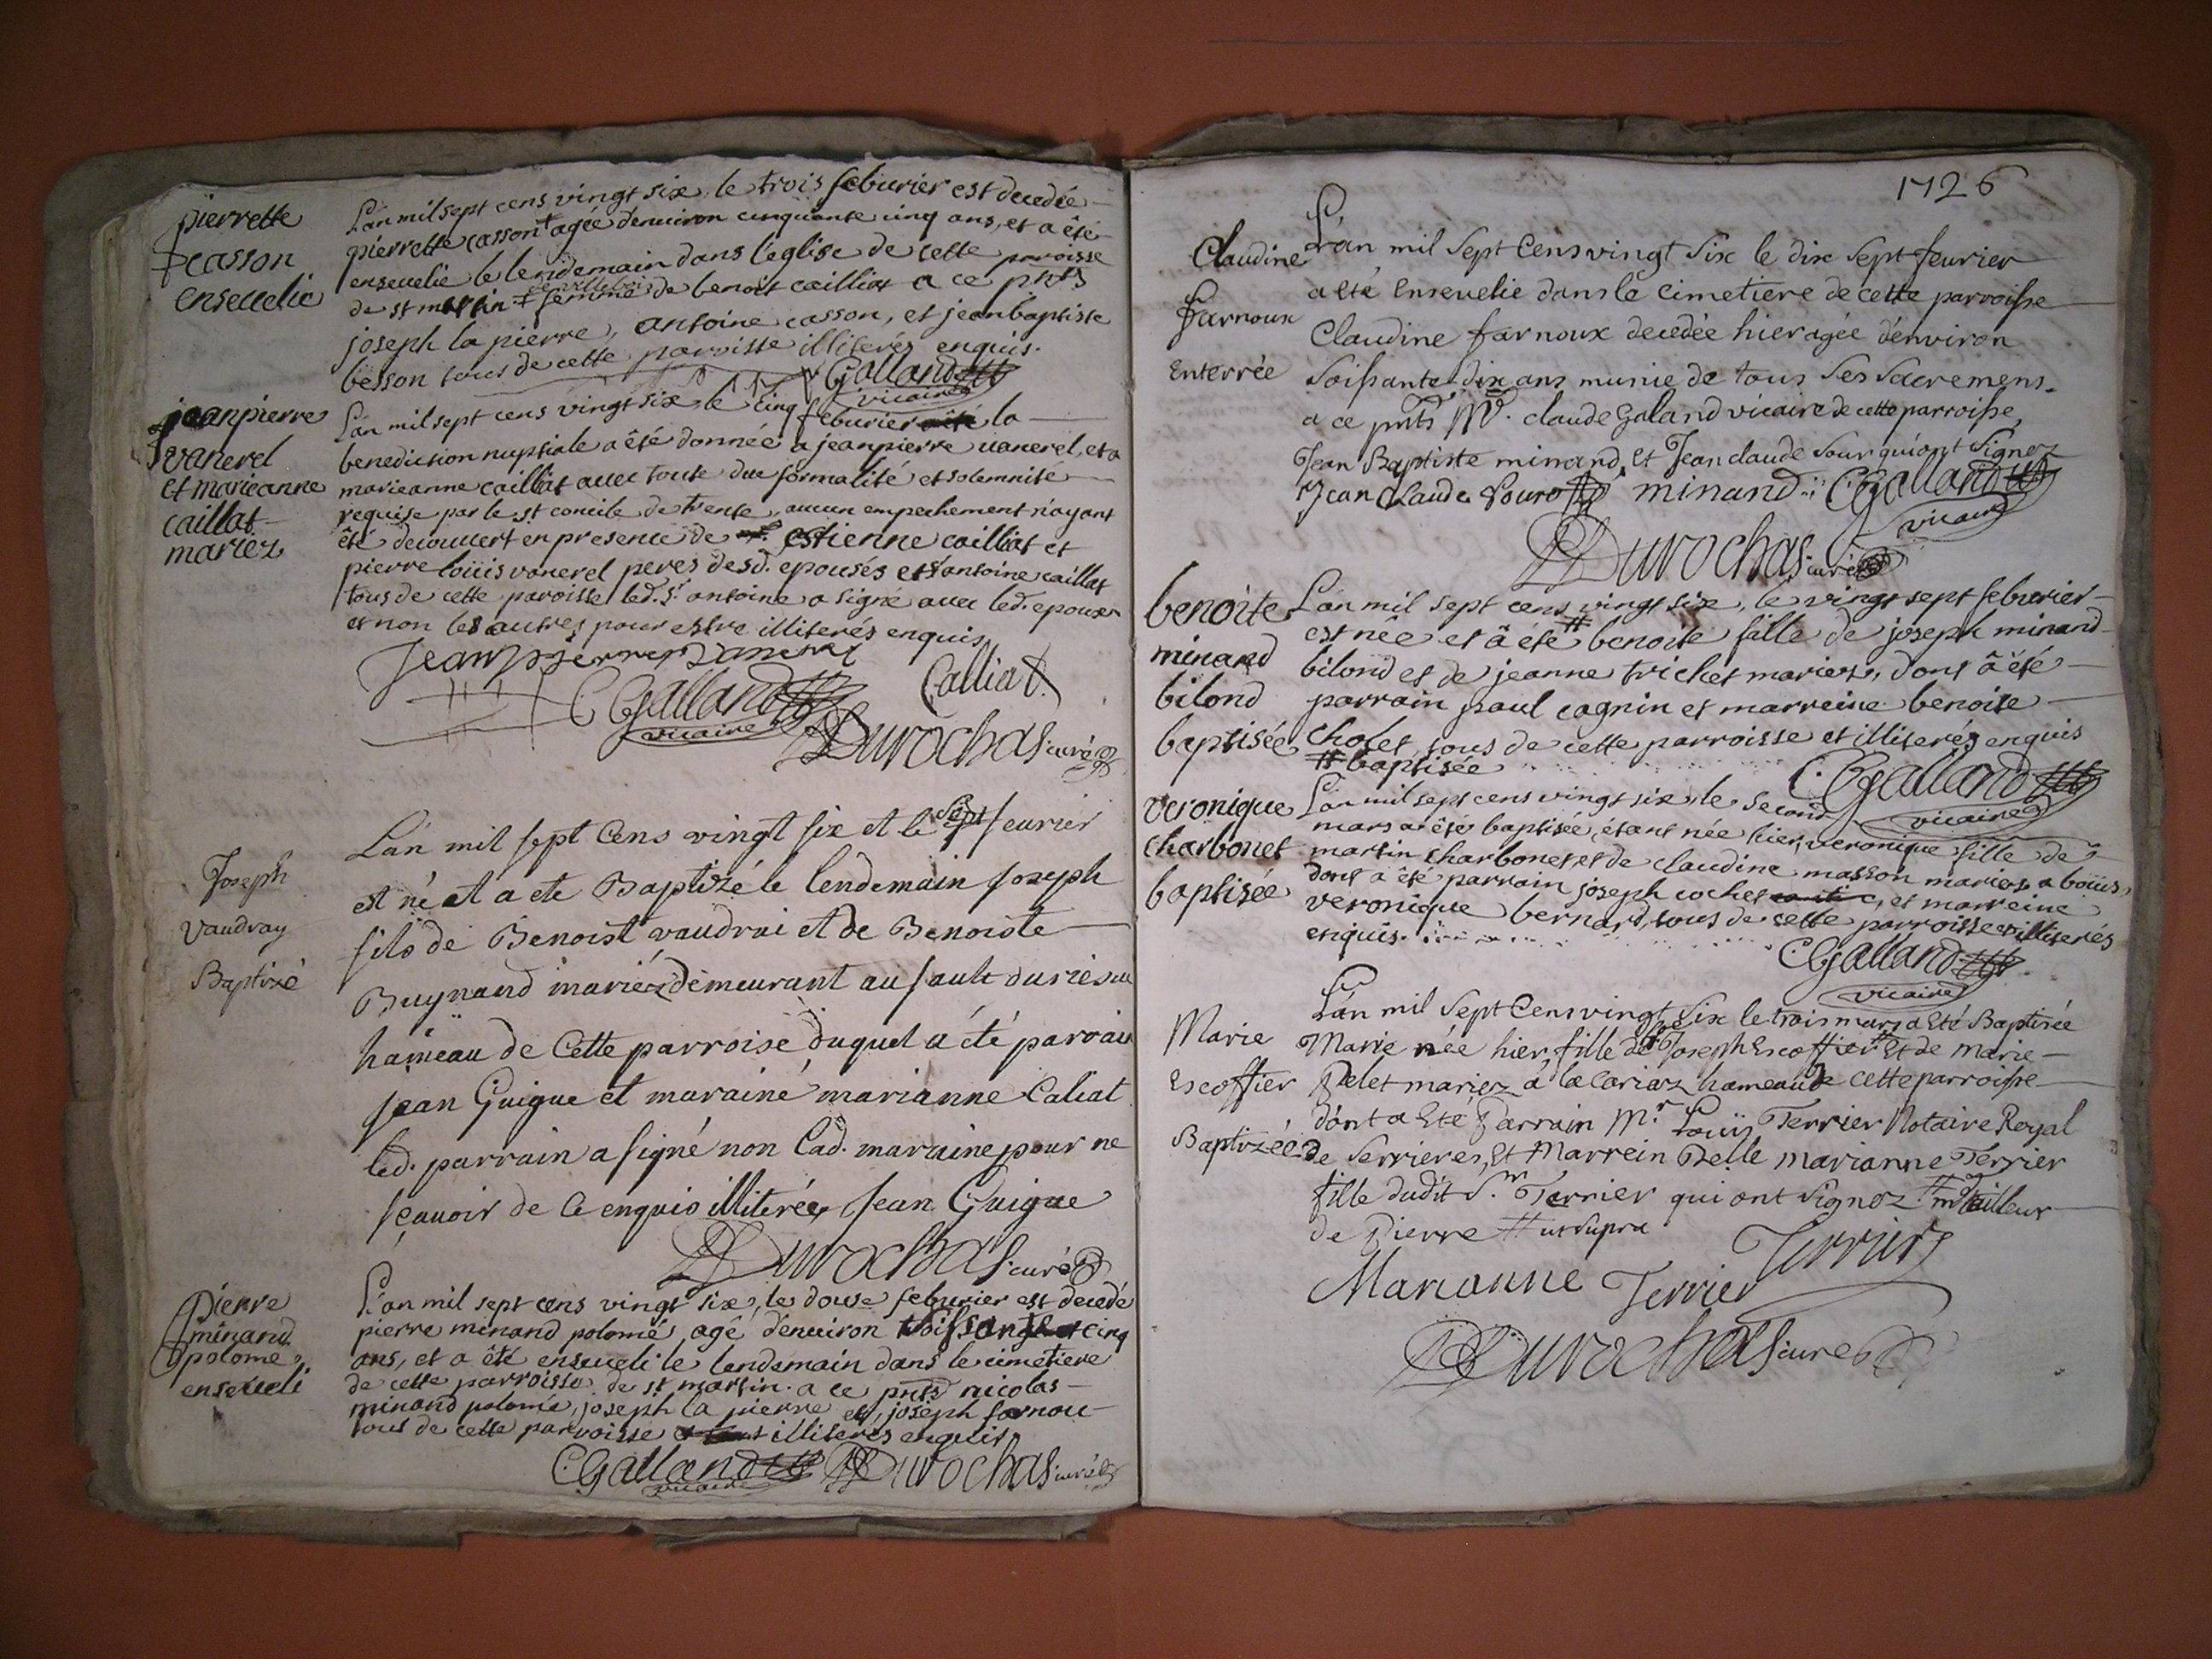 pierrette
casson
enseuelie
L'an mil sept cens vingt six, le trois feburier est decedée
pierrette casson + agée d'enuiron cinquante cinq ans, et a été
enseuelie le lendemain dans l'eglise de cette paroisse
de st martin + femme de benoit cailliat a ce pnts
joseph la pierre, antoine casson, et jean baptiste
besson tous de cette paroisse illiterés enquis.
CGalland
vicaire
jeanpierre
vanerel
et marieanne
caillat
mariez
L'an mil sept cens vingt six le cinq feburier la
benediction nuptiale a été donnée a jeanpierre vanerel, et a
marieanne caillat auec toute due formalité et solemnité
requise par le st concile de trente, aucun empechement n'ayant
été decouuert en presence de estienne cailliat et
pierre loüis vanerel peres desd. epousés et antoine caillat
tous de cette paroisse led. sr. antoine a signé auec led. epoux
et non les autres pour estre illiterés enquis
Calliat
CGalland
vicaire
Durochas curé
Joseph
Vaudray
Baptizé
L'an mil sept Cens vingt six et le sept feurier
est né et a ete Baptizé le lendemain Joseph
fils de Benoist vaudrai et de Benoiste
Buynand mariéz demeurant au sault
hameau de Cette parroise duquel a été parrain
Jean Guigue et maraine marianne Caliat
led. parrain a signé non Lad. maraine pour ne
sçauoir de ce enquis illiterée Jean Guigue
Durochas curé
Pierre
minand
polomé
enseueli
L'an mil sept cens vingt six, le douse feburier est decedé
pierre minand polomé, agé d'enuiron soissante et cinq
ans, et a été enseueli le lendemain dans le cimetiere
de cette parroisse de st martin. a ce pnts nicolas
minand polomé, joseph la pierre et, joseph farnou
tous de cette parroisse illiterés enquis
CGalland
vicaire
Durochas curé
1726
Claudine
farnoux
Enterrée
L'an mil Sept Cens vingt Six le dix Sept feurier
a Eté Enseuelie dans le Cimetiere de cette parroisse
Claudine farnoux decedée hier agée d'environ
Soissante dix ans munie de tous Ses Sacremens.
a ce pnts Mre. claude Galand vicaire de cette parroisse
Jean Baptiste minand, Et Jean claude Sour qui ont Signez
minand CGalland
vicaire
Durochas curé
benoite
minand
bilond
baptisée
L'an mil sept cens vingt six, le vingt sept feburier
est née et â été # benoite fille de joseph minand
bilond et de jeanne trichet mariez, dont â été
parrain paul cagnin et marreine benoite
Cholet, tous de cette parroisse et illiterés enquis
# baptisée
CGalland
vicaire
veronique
charbonet
baptisée
L'an mil sept cens vingt six, le second
mars a été baptisée, étant née hier, veronique fille de
martin charbonet, et de claudine masson mariez a boüis,
dont a été parrain joseph cochet, et marreine
veronique bernard, tous de cette parroisse illiterés
enquis.
CGalland
vicaire
Marie
Escoffier
Baptizée
L'an mil Sept Cens vingt Six le trois mars a Eté Baptisée
Marie née hier fille de Joseph Escoffier # Et de Marie
Pelet mariez á la Cariaz hameau de cette parroisse
dont a Eté Parrain Mr. Loüis Terrier Notaire Royal
de Serrieres, Et Marrein Delle Marianne Terrier
fille dudit Sr. Terrier qui ont Signez # me tailleur
de Pierre # ut supra
Terrier
Marianne Terrier
Durochas curé